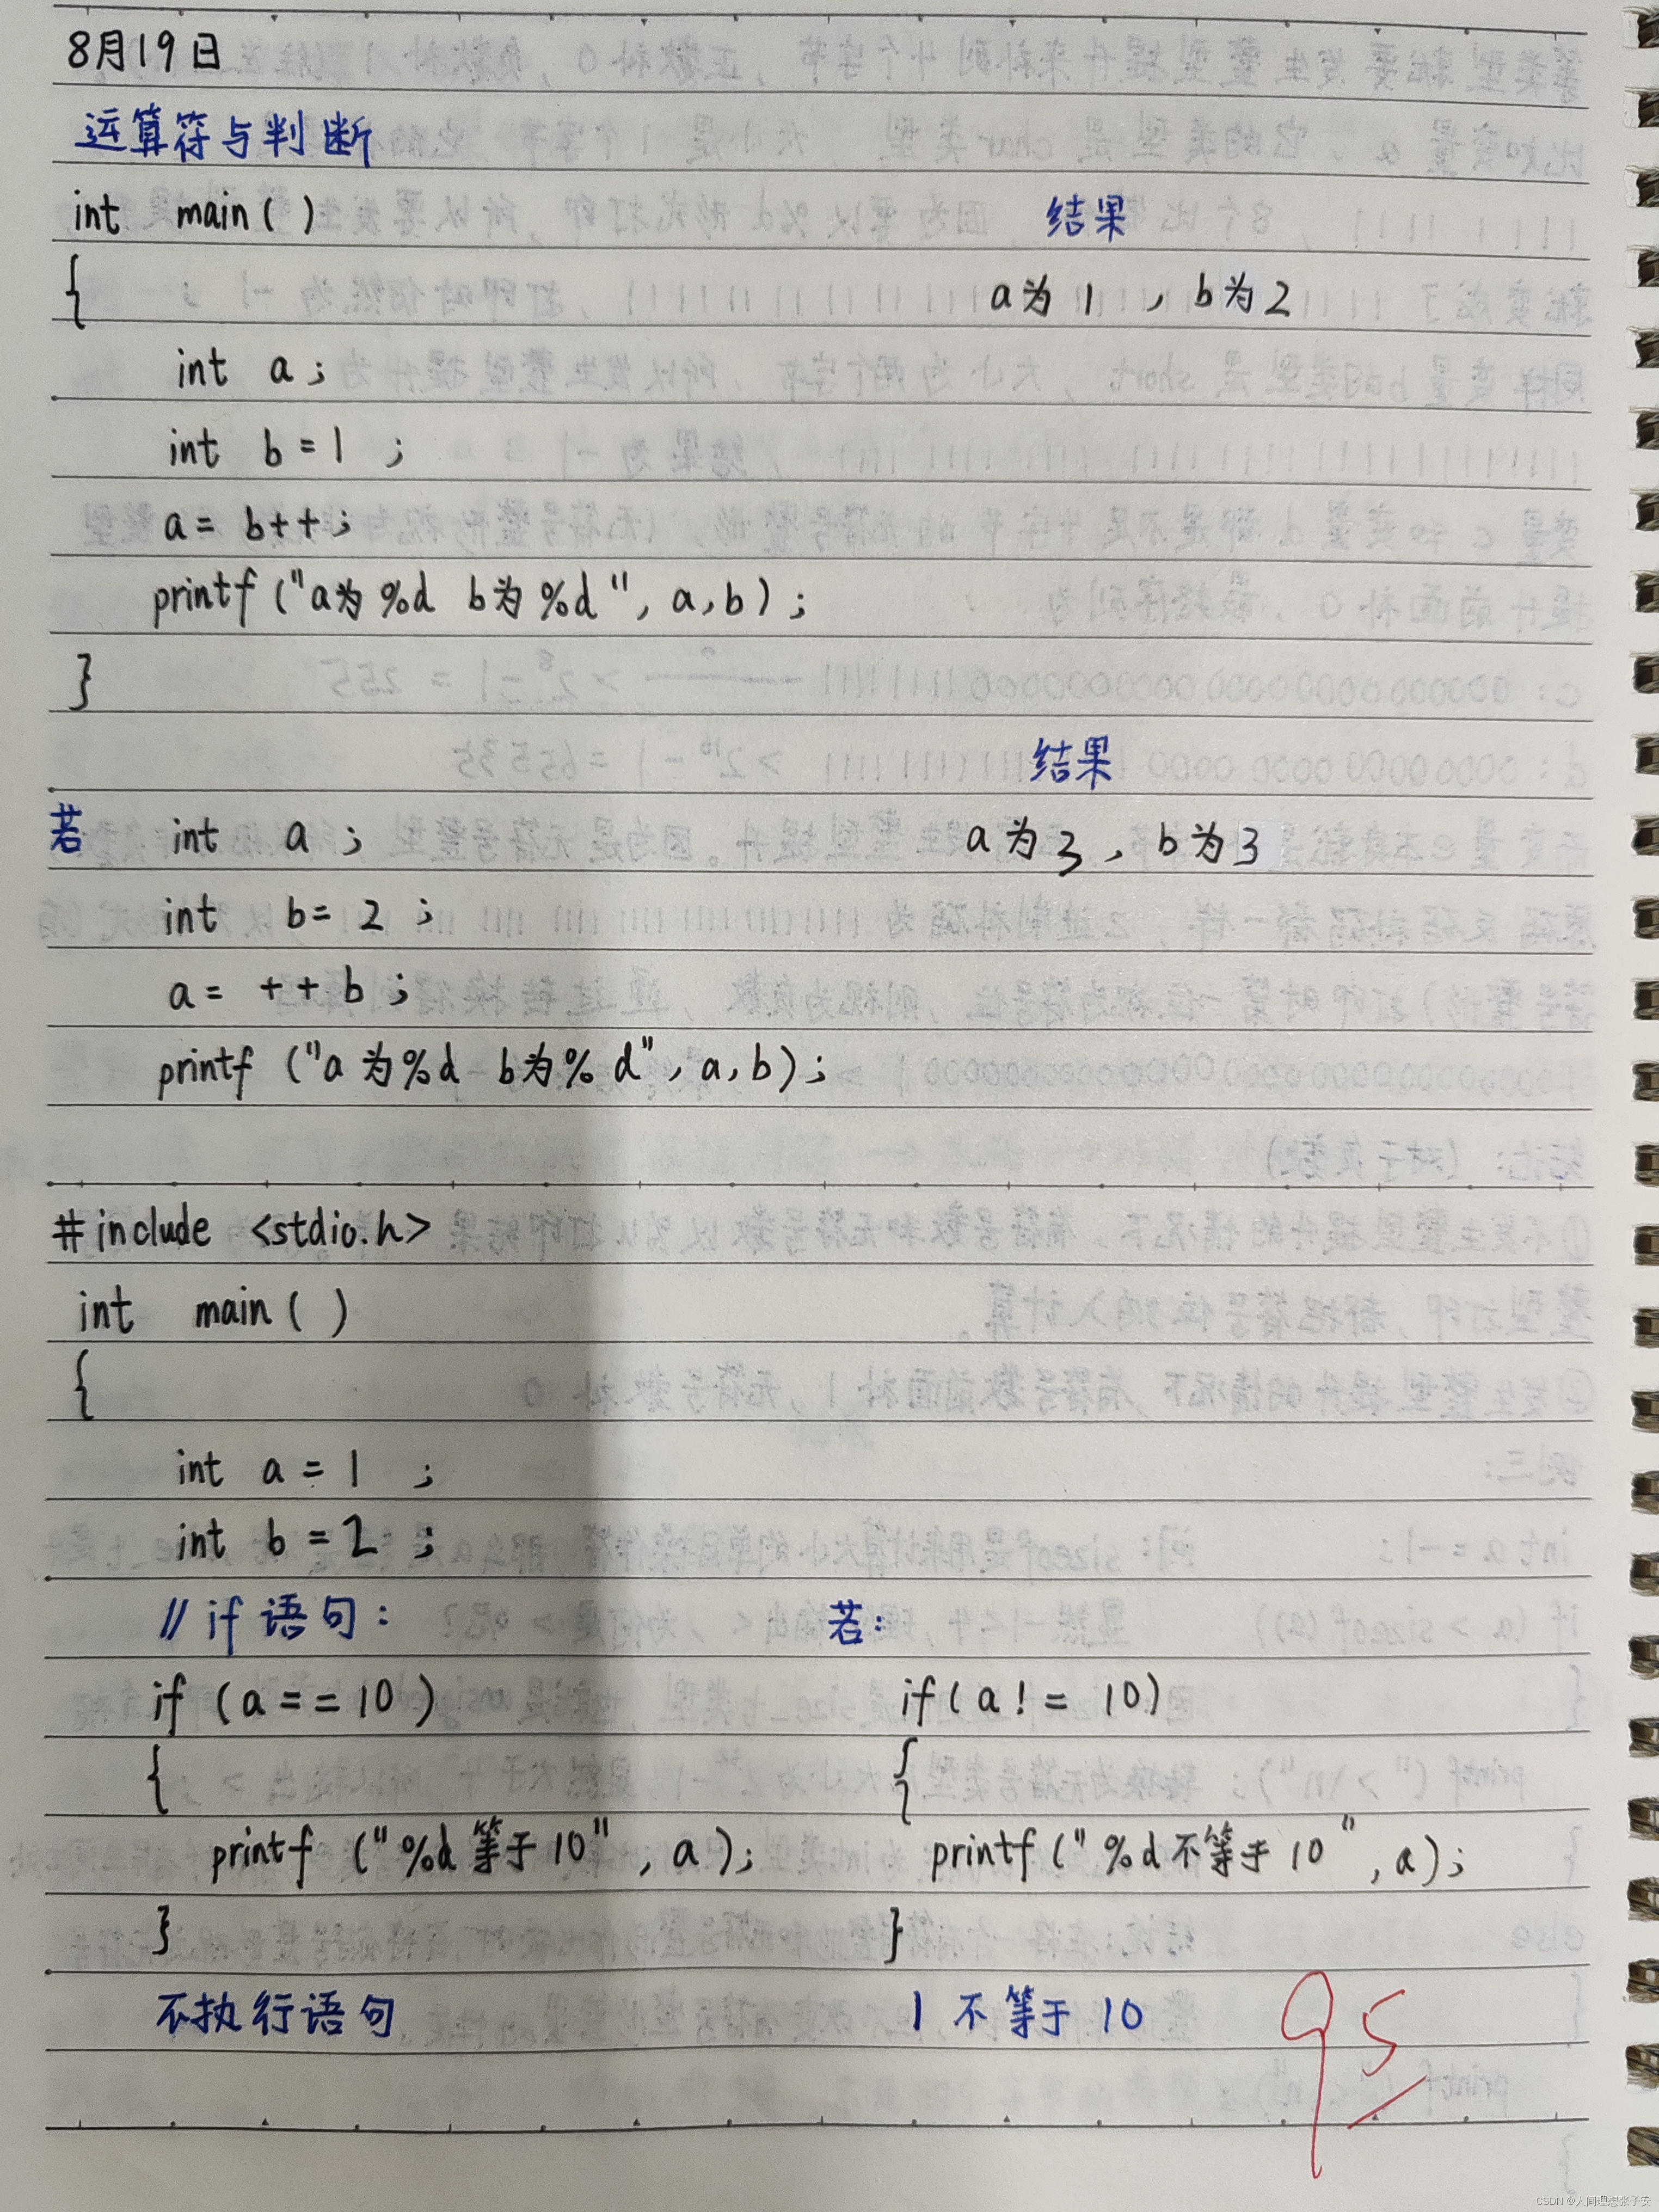 8月19日
运算符与判断
int main( ) 结果
{ a为1 , b为2
int a ;
int b = 1 ;
a = b++ ;
printf ("a为%d b为%d", a,b) ;
}
结果
若 int a ; a为3 , b为3
int b = 2 ;
a = ++b ;
printf ("a为%d b为%d", a,b) ;
#include <stdio.h>
int main( )
{
int a = 1 ;
int b = 2 ;
// if 语句 : 若 :
if (a == 10) if (a != 10)
{ {
printf ("%d等于10" , a) ; printf ("%d不等于10" , a) ;
} }
不执行语句 1 不等于 10
95
CSDN @人间理想张子安